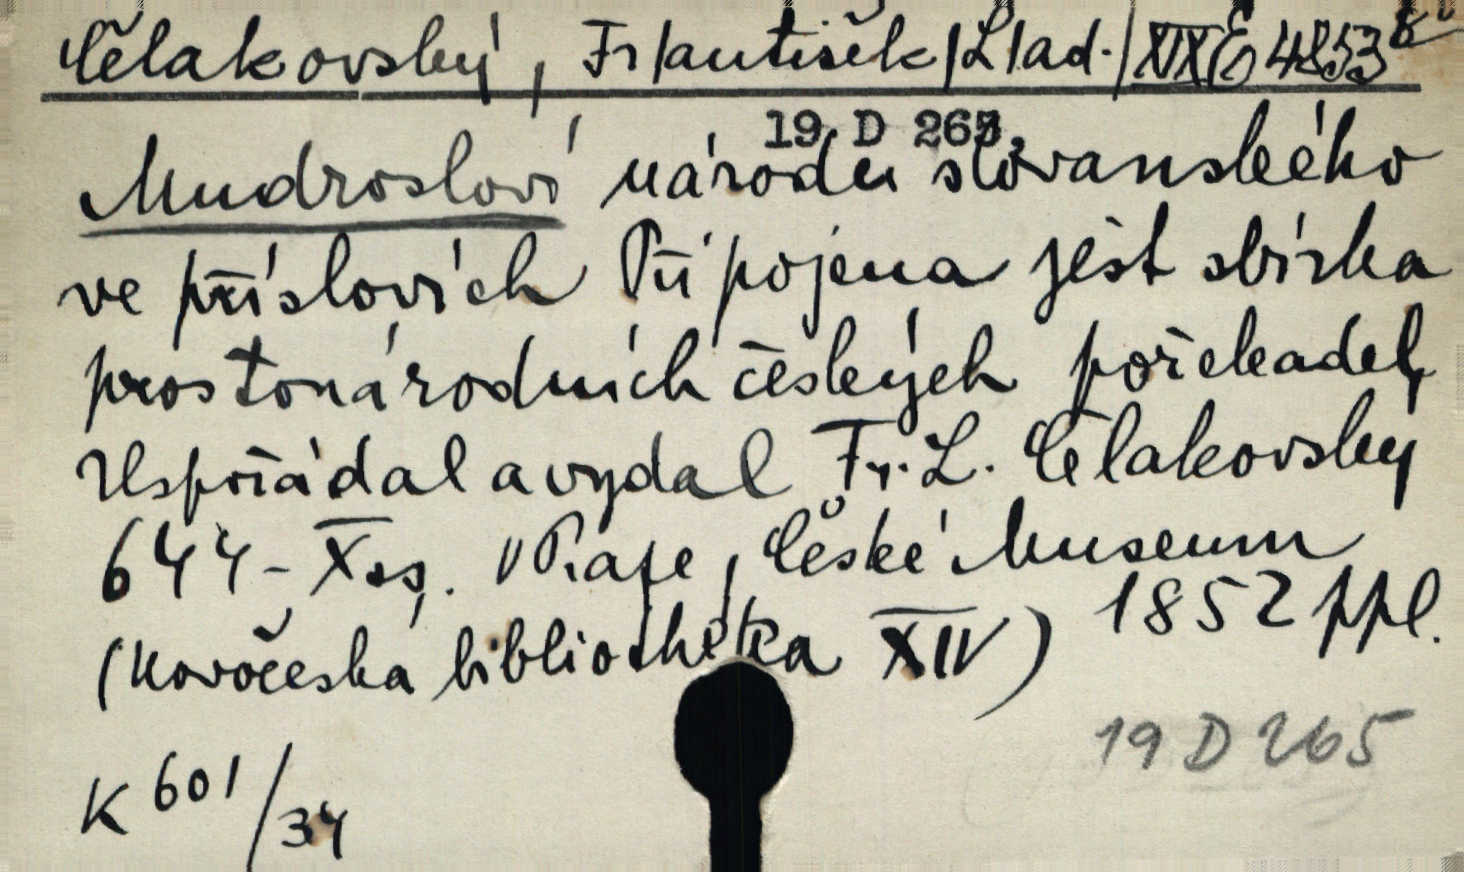 Čelakovský, Fr/antišek/L/ad./ XIX E 4853
19 D 265.
Mudrosloví národu slovanského
ve příslovích Připojena jest sbírka
prostonárodních českých pořekadel,
Uspořádal a vydal Fr. L. Čelakovský
644-X ss. V Praze, České Museum
1852 ppl.
(Novočeská bibliothéka XIV)
19 D 265
K 601/34